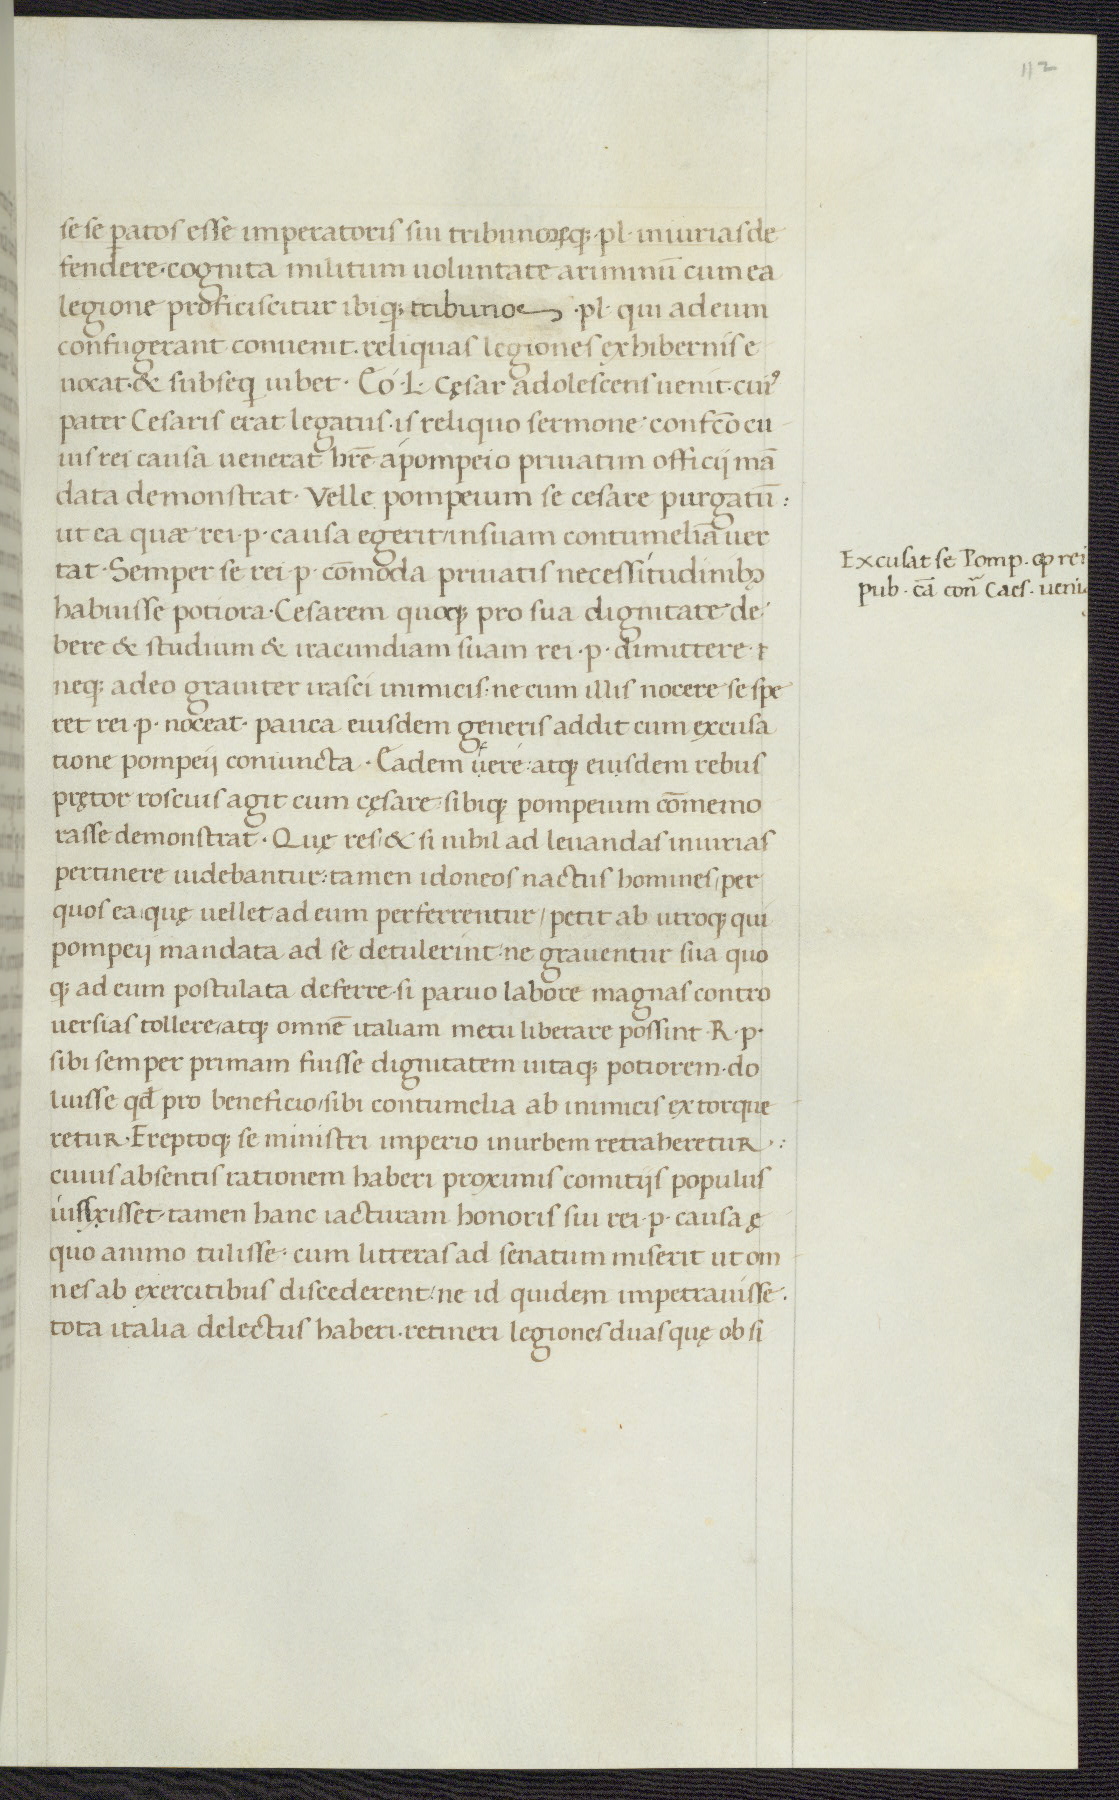 112
se se ꝑatos esse imperatoris sui tribunoꝝq; pl· iniurias de
fendere· cognita militum uoluntate ariminū cum ea
legione proficiscitur ibiq; tribunos ·pl· qui ad eum
confugerant conuenit. reliquas legiones ex hibernis e
uocat· & subseq̄ iubet· Eó ·L· Cęsar adolescens uenit· cuiꝰ
pater Cesaris erat legatus· is reliquo sermone confc̄o cu
ius rei causa uenerat hr̄e á pompeio priuatim officij mā
data demonstrat· Velle pompeium se cesare purgatū:
ut ea quæ rei· p· causa egerit/ in suam contumeliā uer
tat· Semper se rei· p· cōmoda priuatis necessitudinibꝫ
habuisse potiora· Cesarem quoq; pro sua dignitate de/
bere & studium & iracundiam suam rei· p· dimittere·
neq; adeo grauiter irasci inimicis: ne cum illis nocere se spe
ret rei· p· noceat· pauca eiusdem generis addit cum excusa
tione pompeij coniuncta· Eadem uere: atq; eiusdem rebus
pr̨etor roscius agit cum cęsare· sibiq; pompeium cōmemo
rasse demonstrat· Quę res/ & si nihil ad leuandas iniurias
pertinere uidebantur: tamen idoneos nactus homines/ per
quos ea/ quę uellet/ ad eum perferrentur/ petit ab utroq; qui
pompeij mandata ad se detulerint/ ne grauentur sua quo
q; ad eum postulata deferre· si paruo labore magnas contro
uersias tollere/ atq; omnē italiam metu liberare possint· R· p·
sibi semper primam fuisse dignitatem uitaq; potiorem· do
luisse qđ pro beneficio/ sibi contumelia ab inimicis extorque
retur· Ereptoq; se ministri imperio in urbem retraheretur·:
cuius absentis rationem haberi proximis comitijs populus
iussisset· tamen hanc iacturam honoris sui rei· p· causa ę
quo animo tulisse· cum litteras ad senatum miserit ut om
nes ab exercitibus discederent/ ne id quidem impetrauisse·
tota italia delectus haberi· retineri legiones duas quę ob si
Excusat se Pomp. ꝙ rei
pub· cā con̄ Caes· ueni